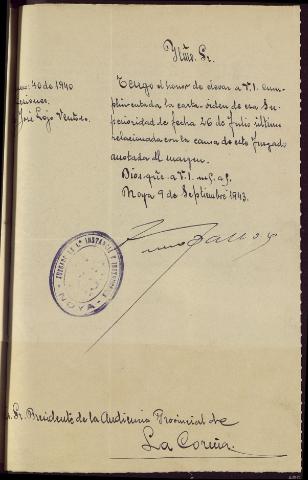 Iltmo. Sr.
40 de 1940
José Lojo Ventoso
Tengo el honor de elevar a V.I. cum-
plimentada la carta-orden de esa Su-
perioridad de fecha 26 de Julio último
relacionada con la causa de este Juzgado
anotada al margen.
Dios gde. a V.I. m. a.
Noya 9 de Septiembre 1943.
JUZGADO DE 1ª INSTANCIA E INSTRUCCION
NOYA
Sr. Presidente de la Audiencia Provincial de
La Coruña.